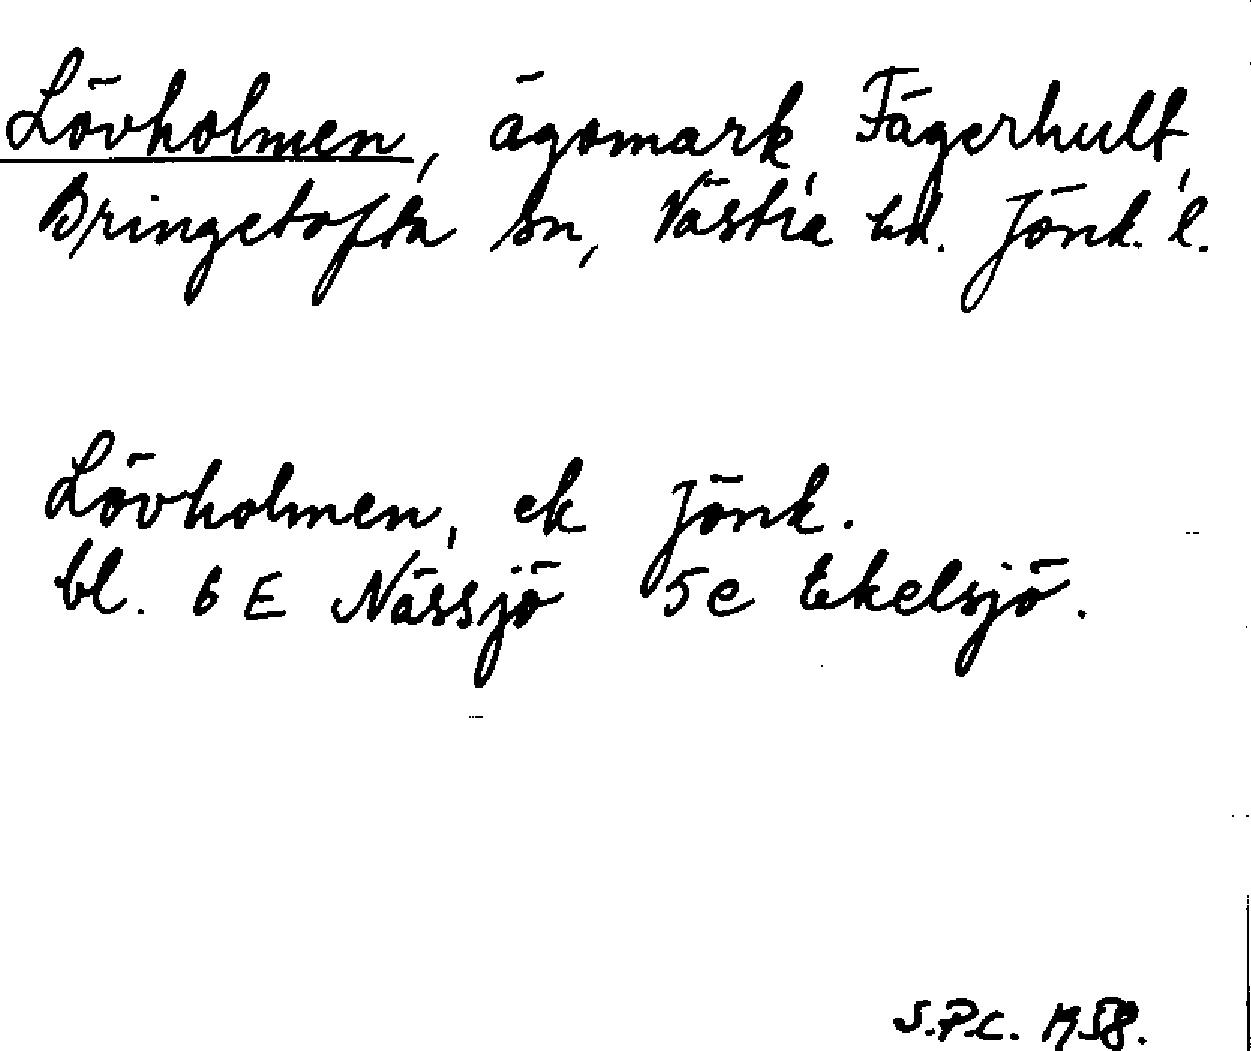 Lövholmen, ägomark, Fägerhult,
Bringetofta sn, Västra hd. Jönk. l.
Lövholmen, ek Jönk.
bl. 6 E Nässjö 5e Ekelsjö.
S.P.C. 1958.